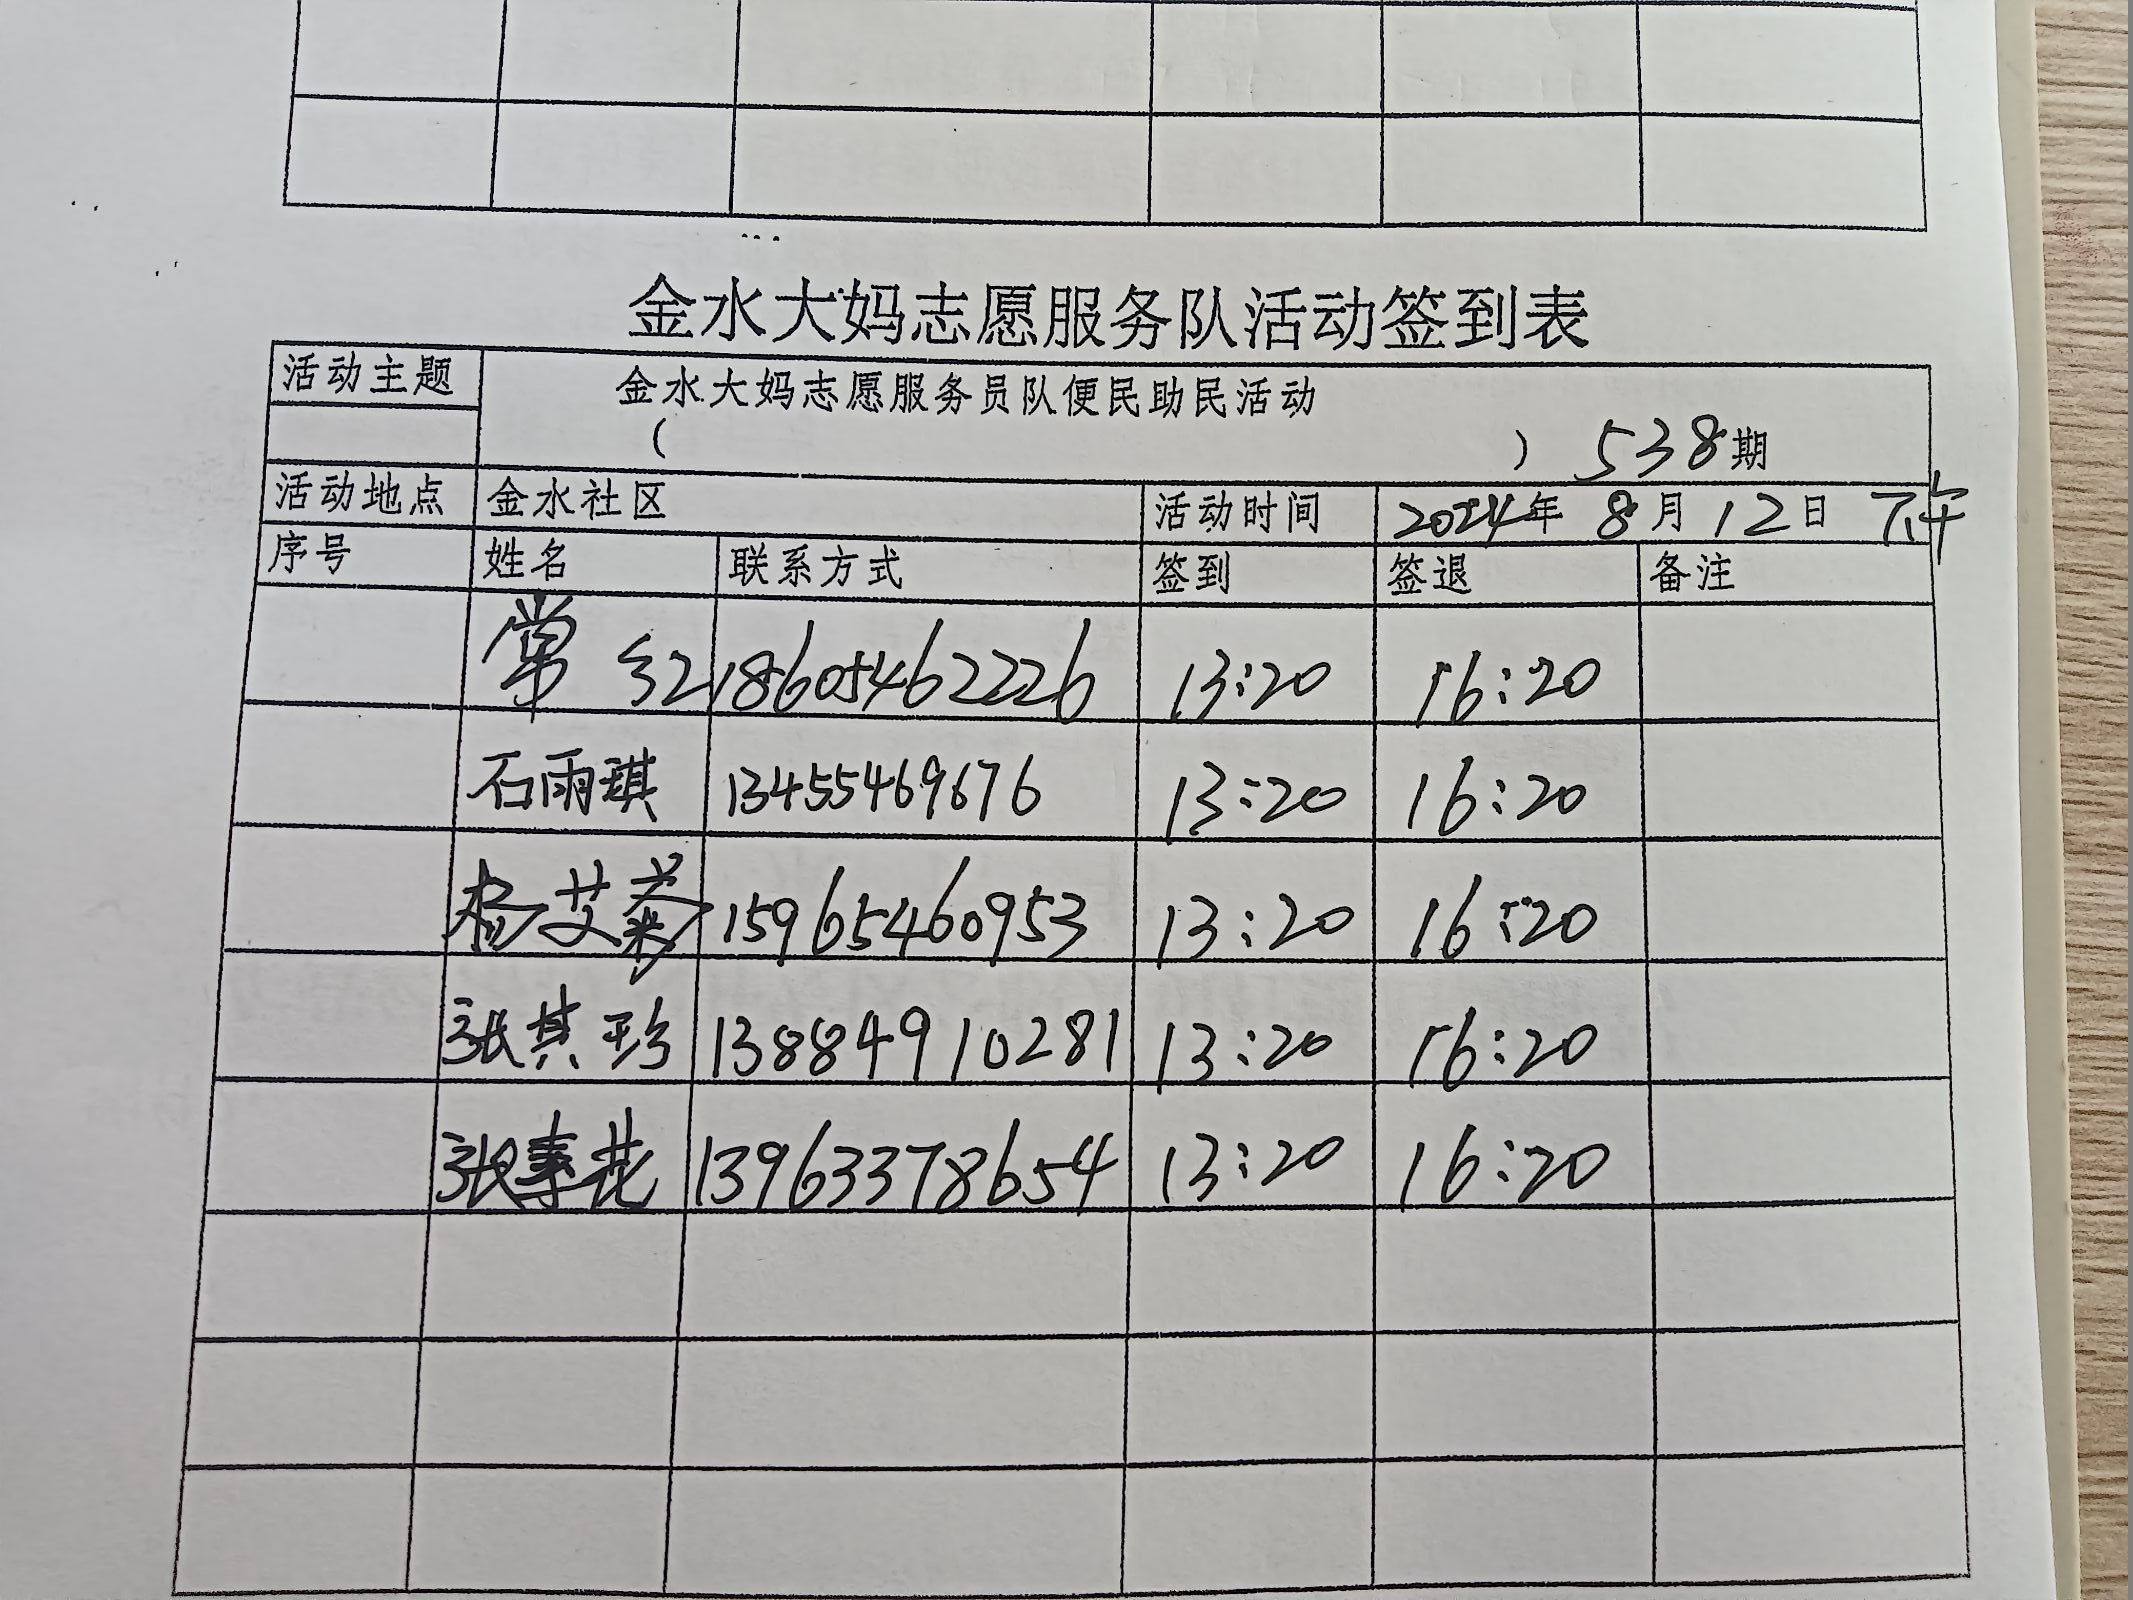 金水大妈志愿服务队活动签到表
活动主题 金水大妈志愿服务员队便民助民活动
( ) 538期
活动地点 金水社区 活动时间 2024年 8月12日 下午
序号 姓名 联系方式 签到 签退 备注
常红 18605462226 13:20 16:20
石雨琪 13455469676 13:20 16:20
杨艾菊 15965460953 13:20 16:20
张其珍 13884910281 13:20 16:20
张春花 13963378654 13:20 16:20